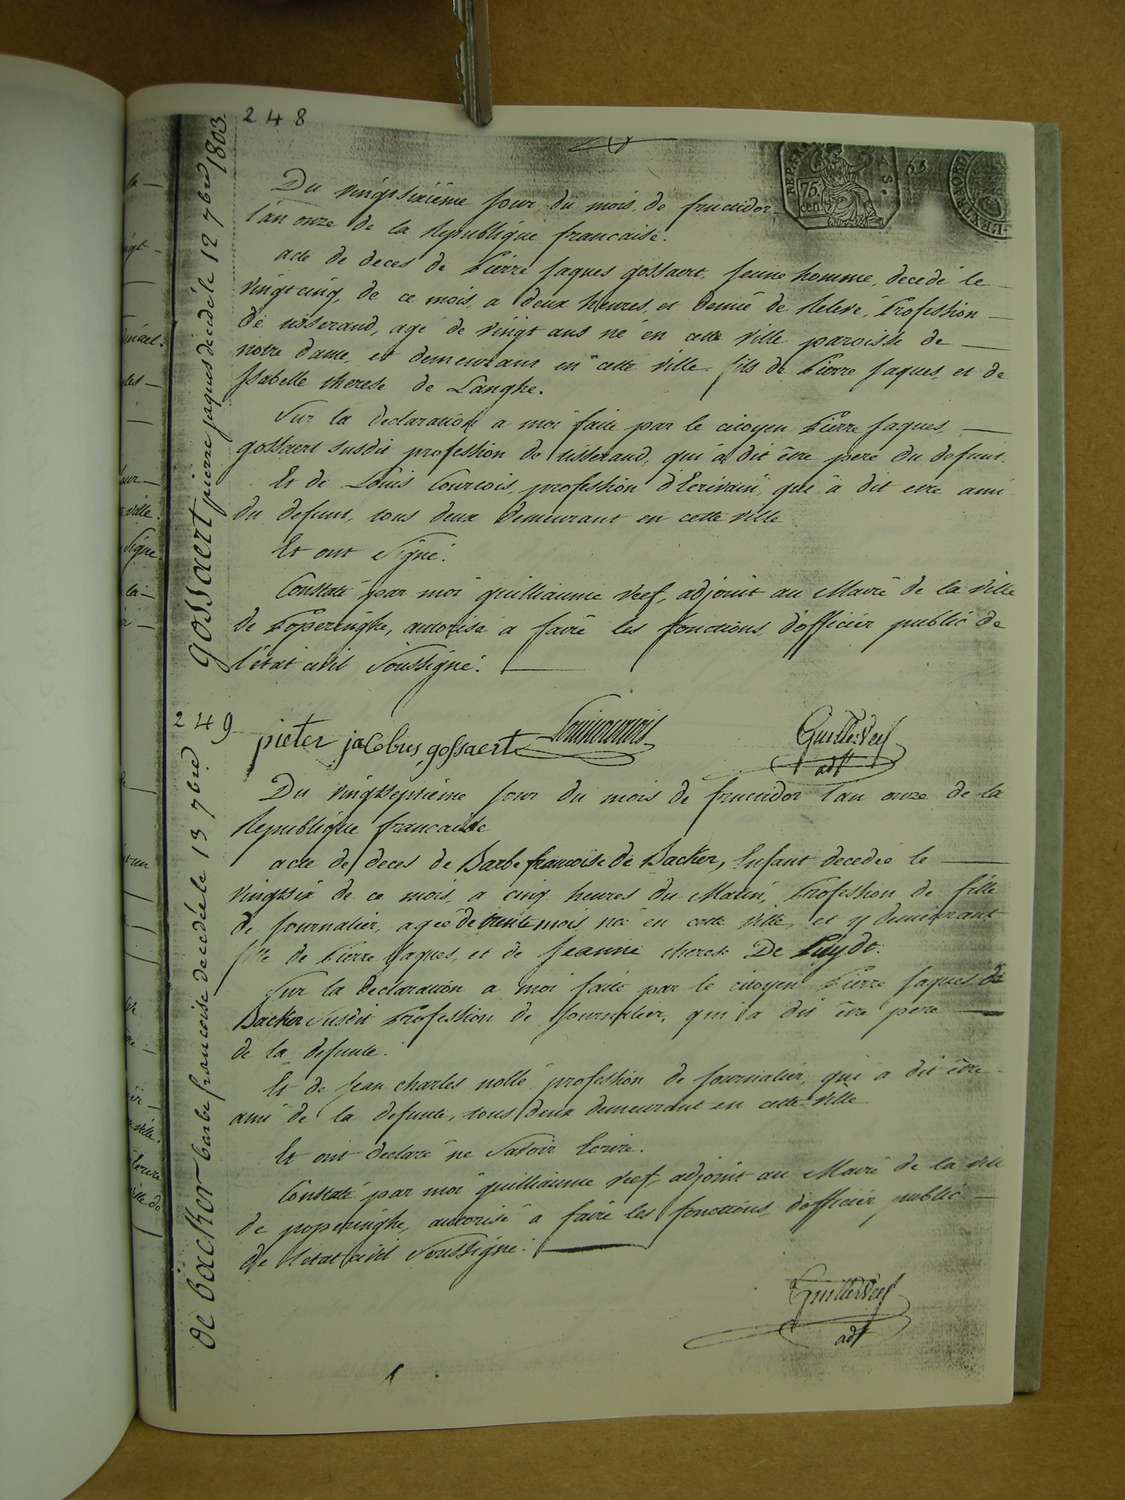 248
gossaert pierre jaques décédé le 12 7bre 1803.
Du vingtsixiême jour du mois de fructidor
l'an onze de la republique francaise.
acte de deces de Pierre jaques gossaert, jeune homme, decedé le
vingtcinq de ce mois a deux heures et demie de relevé, Profession
de tisserand, agé de vingt ans né en cette ville paroisse de
notre dame, et demeurant en cette ville fils de Pierre jaques, et de
Isabelle therese de Langhe.
Sur la declaration a moi faite par le citoyen Pierre jaques
gossaert susdit profession de tisserand, qui a dit être pere du defunt.
Et de Louis Courtois, profession d'Ecrivain, qui a dit etre ami
du defunt, tous deux demeurant en cette ville
Et ont signé.
Constaté par moi guilliaume Veef, adjoint au Maire de la ville
de Poperinghe, autorisé a faire les fonctions d'officier public de
l'état civil soussigné.
pieter jacobus gossaert
Guille: Veef
adjt
249
de backer barbe francoise décédée le 13 7bre
Du vingtseptieme jour du mois de fructidor l'an onze de la
republique francaise
acte de deces de Barbe francoise de Backer, Enfant decedée le
vingtsix de ce mois, a cinq heures du Matin, Profession de fille
de journalier, agée de trente mois née en cette ville, et y demeurant
fille de Pierre jaques, et de jeanne therese De Puydt.
Sur la declaration a moi faite par le citoyen Pierre jaques de
Backer susdit Profession de journalier, qui a dit être pere
de la defunte.
Et de jean charles nollé profession de journalier, qui a dit être
ami de la defunte, tous deux demeurant en cette ville
Et ont declaré ne savoir Ecrire.
Constaté par moi guilliaume Veef, adjoint au Maire de la ville
de poperinghe, autorisé a faire les fonctions d'officier public
de l'etat civil soussigné.
Guille: Veef
adjt